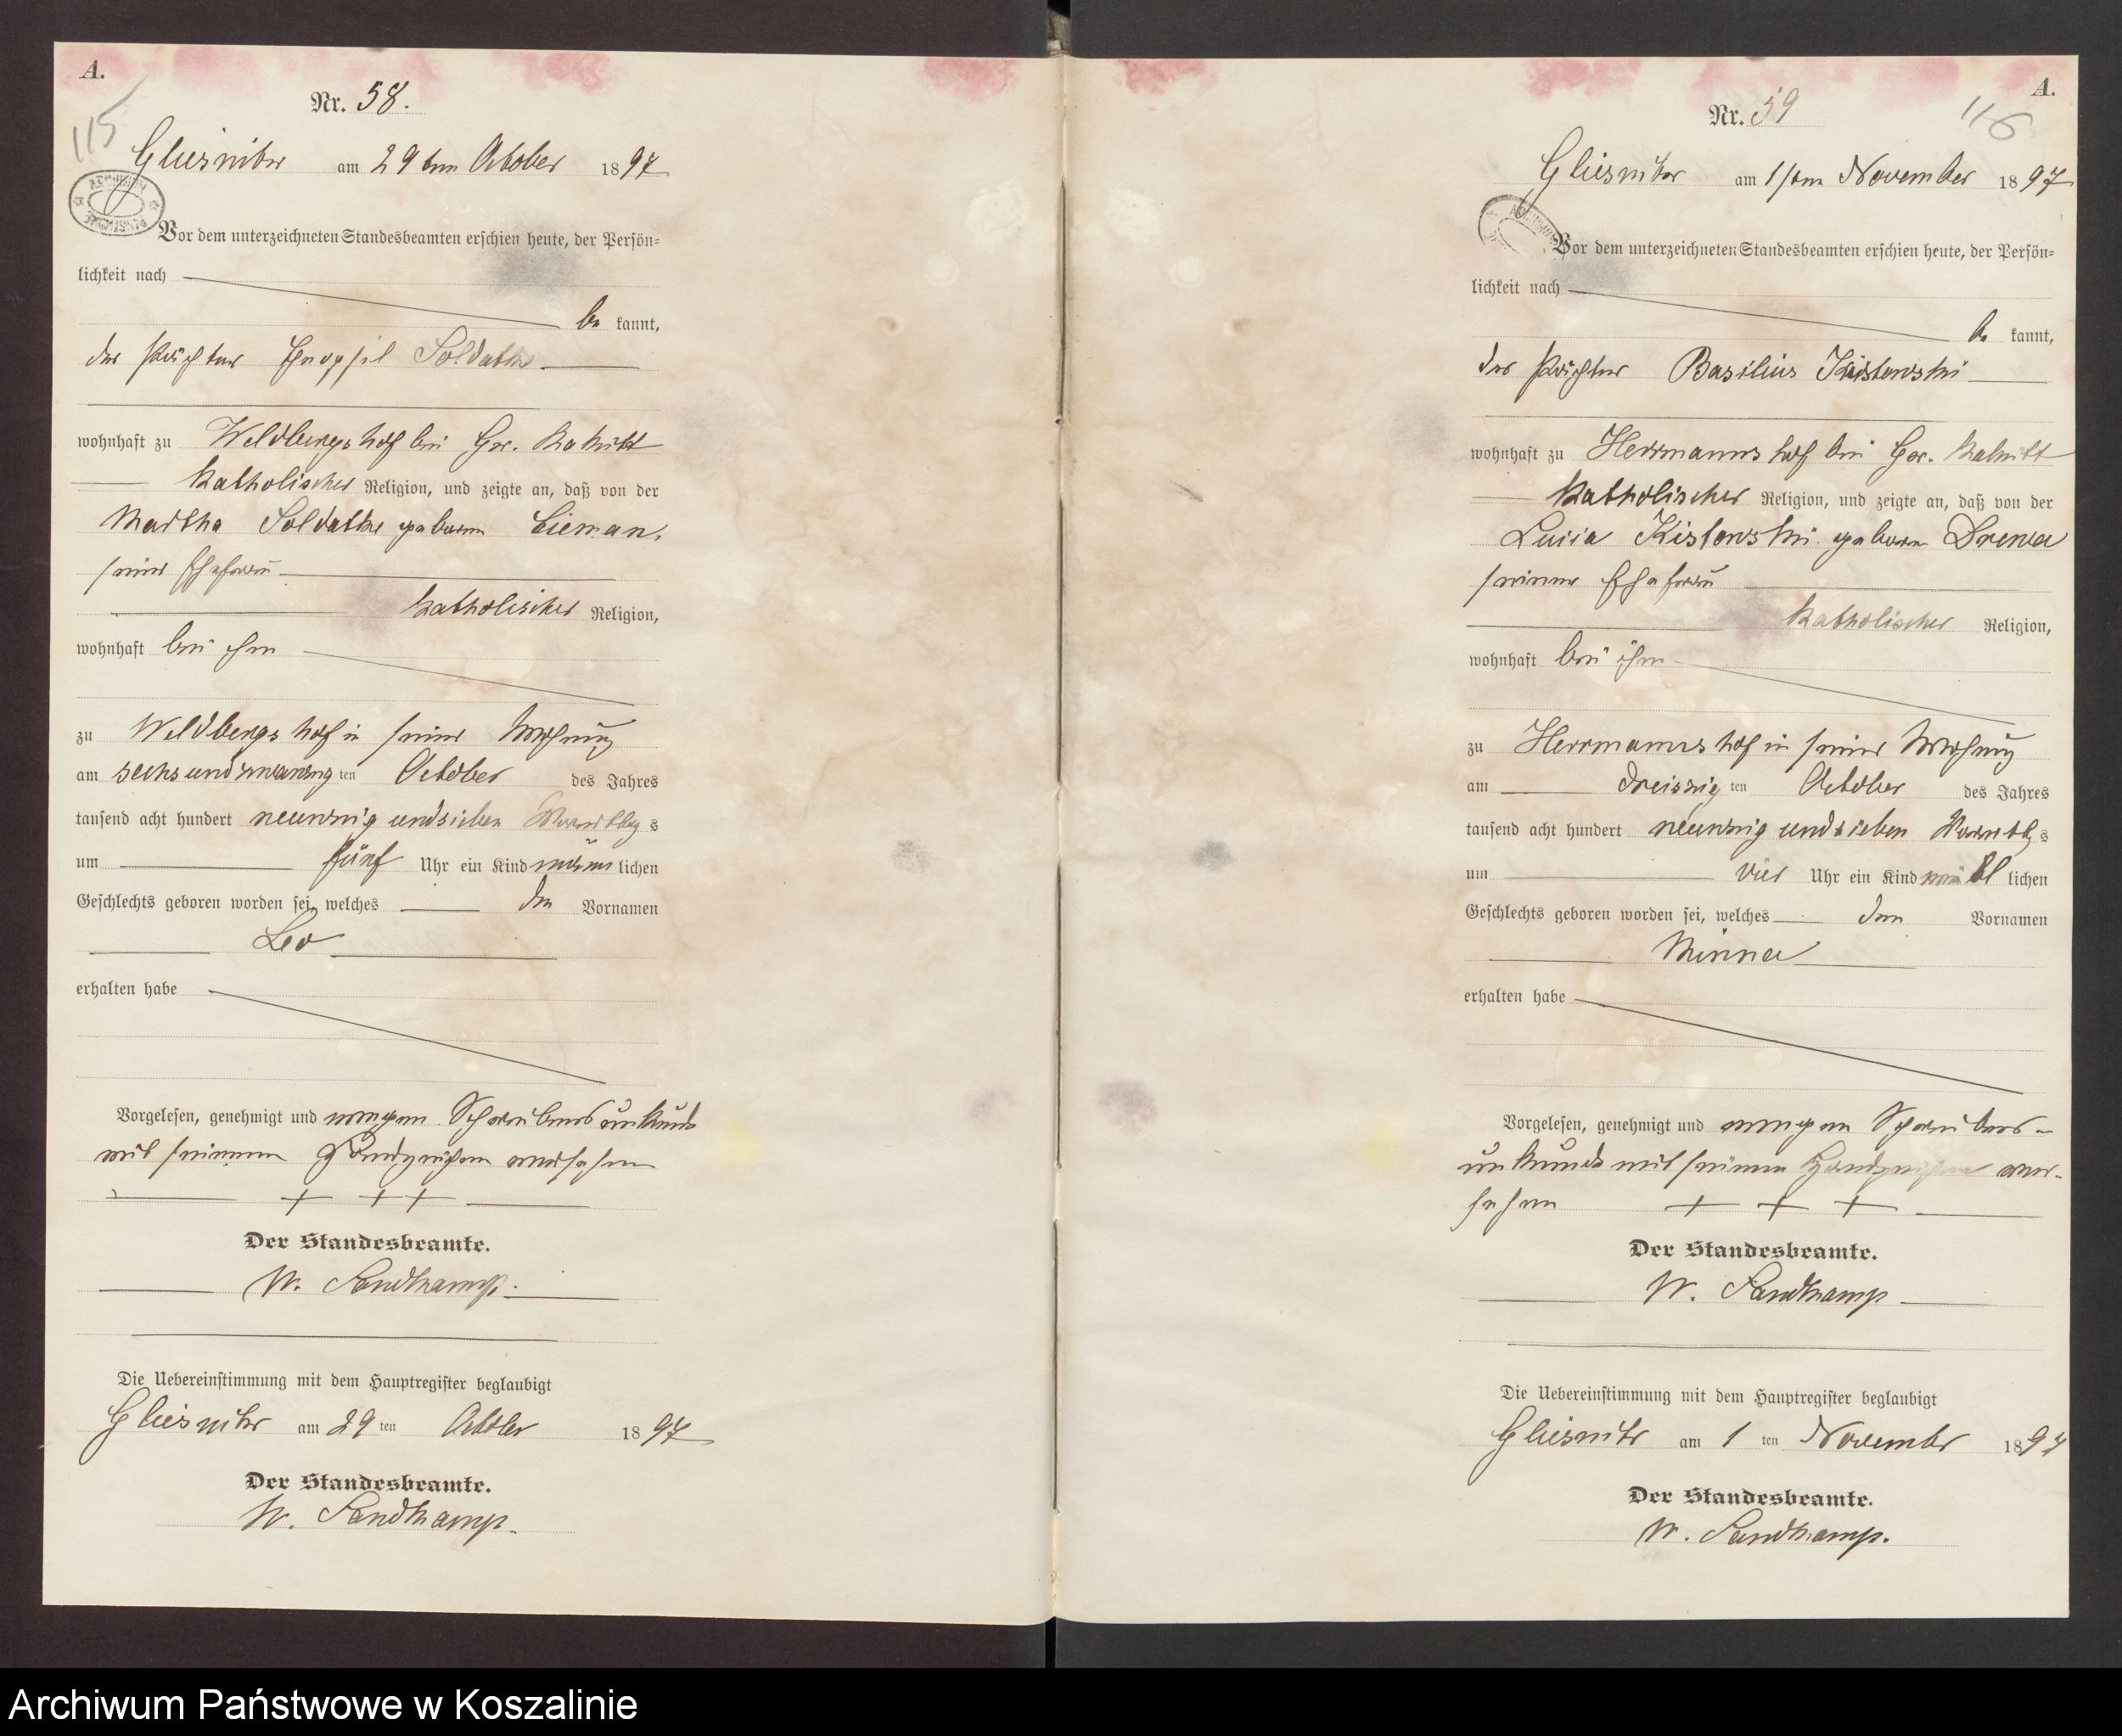 A.
115
Nr. 58.
Gliesnitz am 29ten October 1897
Vor dem unterzeichneten Standesbeamten erschien heute, der Persön=
lichkeit nach
be kannt,
der Pächter Soldatke
wohnhaft zu Weldbergshof bei Gr.
katholischer Religion, und zeigte an, daß von der
Martha Soldatke geboren Cieman,
seiner Ehefrau
katholischer Religion,
wohnhaft bei ihm
zu Weldbergshof in seiner Wohnung
am sechsundzwanzig ten October des Jahres
tausend acht hundert neunzig und sieben Vormittag s
um fünf Uhr ein Kind männ lichen
Geschlechts geboren worden sei, welches den Vornamen
Leo
erhalten habe
Vorgelesen, genehmigt und wegen Schreibensunkunde
mit seinem Handzeichen versehen
+ + +
Der Standesbeamte.
W. Sandkamp.
Die Uebereinstimmung mit dem Hauptregister beglaubigt
Gliesnitz am 29 ten October 1897
Der Standesbeamte.
W. Sandkamp.
A.
116
Nr. 59
Gliesnitz am 1ten November 1897
Vor dem unterzeichneten Standesbeamten erschien heute, der Persön=
lichkeit nach
be kannt,
der Pächter Basilius Kistowski
wohnhaft zu Herrmannshof bei Gr.
katholischer Religion, und zeigte an, daß von der
Kistowski geboren Drewa
seiner Ehefrau
katholischer Religion,
wohnhaft bei ihm
zu Herrmannshof in seiner Wohnung
am dreiszig ten October des Jahres
tausend acht hundert neunzig und sieben Vormittag s
um vier Uhr ein Kind weibl lichen
Geschlechts geboren worden sei, welches den Vornamen
Minna
erhalten habe
Vorgelesen, genehmigt und wegen Schreibens-
unkunde mit seinem Handzeichen ver-
sehen + + +
Der Standesbeamte.
W. Sandkamp
Die Uebereinstimmung mit dem Hauptregister beglaubigt
Gliesnitz am 1 ten November 1897
Der Standesbeamte.
W. Sandkamp.
Archiwum Państwowe w Koszalinie